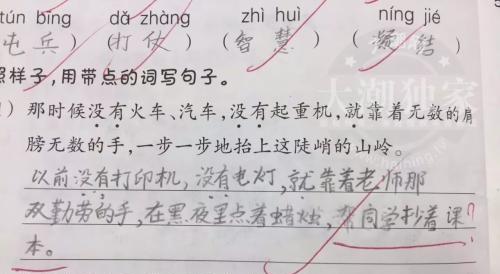 tún bīng dǎ zhàng zhì huì níng jié
(屯兵) (打仗) (智慧) (凝结)
照样子,用带点的词写句子。
1) 那时候没有火车、汽车,没有起重机,就靠着无数的肩
膀无数的手,一步一步地抬上这陡峭的山岭。
以前没有打印机,没有电灯,就靠着老师那
双勤劳的手,在黑夜里点着蜡烛,帮同学抄着课?
本。
大潮独家